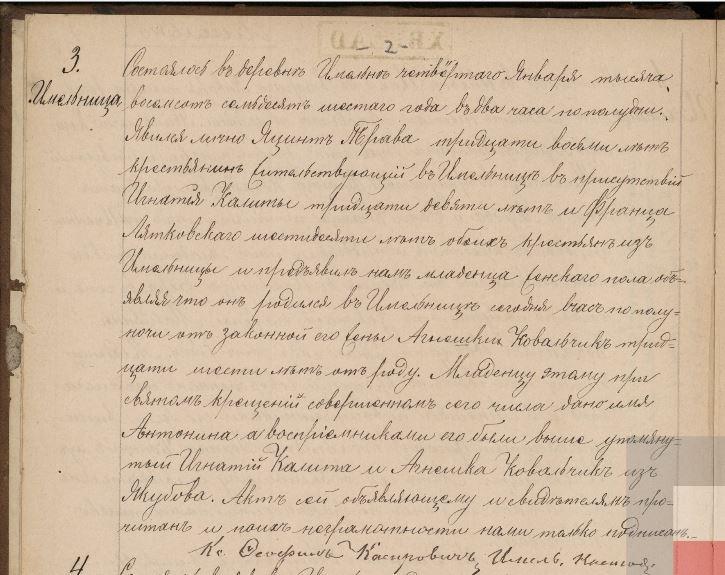 - 2 -
3.
Имельница
Состоялось въ деревнѣ Имельнѣ четвёртаго Января тысяча
восемсотъ семьдесятъ шестаго года въ два часа по полудни.
Явился лично Яцинтъ Трава тридцати восьми лѣтъ
крестьянинъ жительствующій въ Имельницѣ въ присутствій
Игнатія Калиты тридцати девяти лѣтъ и Франца
Лятковскаго шестидесяти лѣтъ обоихъ крестьянъ изъ
Имельницы и предъявилъ намъ младенца женскаго пола объ-
являя что онъ родился въ Имельницѣ сегодня въ часъ по полу-
ночи отъ законной его жены Агнешки Ковальчикъ трид-
цати шести лѣтъ отъ роду. Младенцу этому при
святомъ крещеній совершенномъ сего числа дано имя
Антонина а воспріемниками его были выше упомяну-
тый Игнатій Калита и Агнешка Ковальчикъ изъ
Якубова. Актъ сей объявляющему и свидѣтелямъ про-
читанъ и по ихъ неграмотности нами только подписанъ.
Кс. Касперовичъ Имель. Настоя.
4